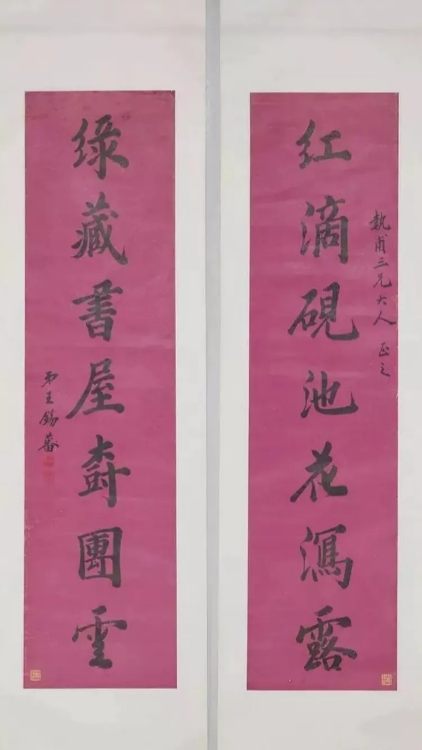 紅滴硯池花瀉露
甫三兄大人 正之
綠藏書屋樹團雲
弟王錫蕃